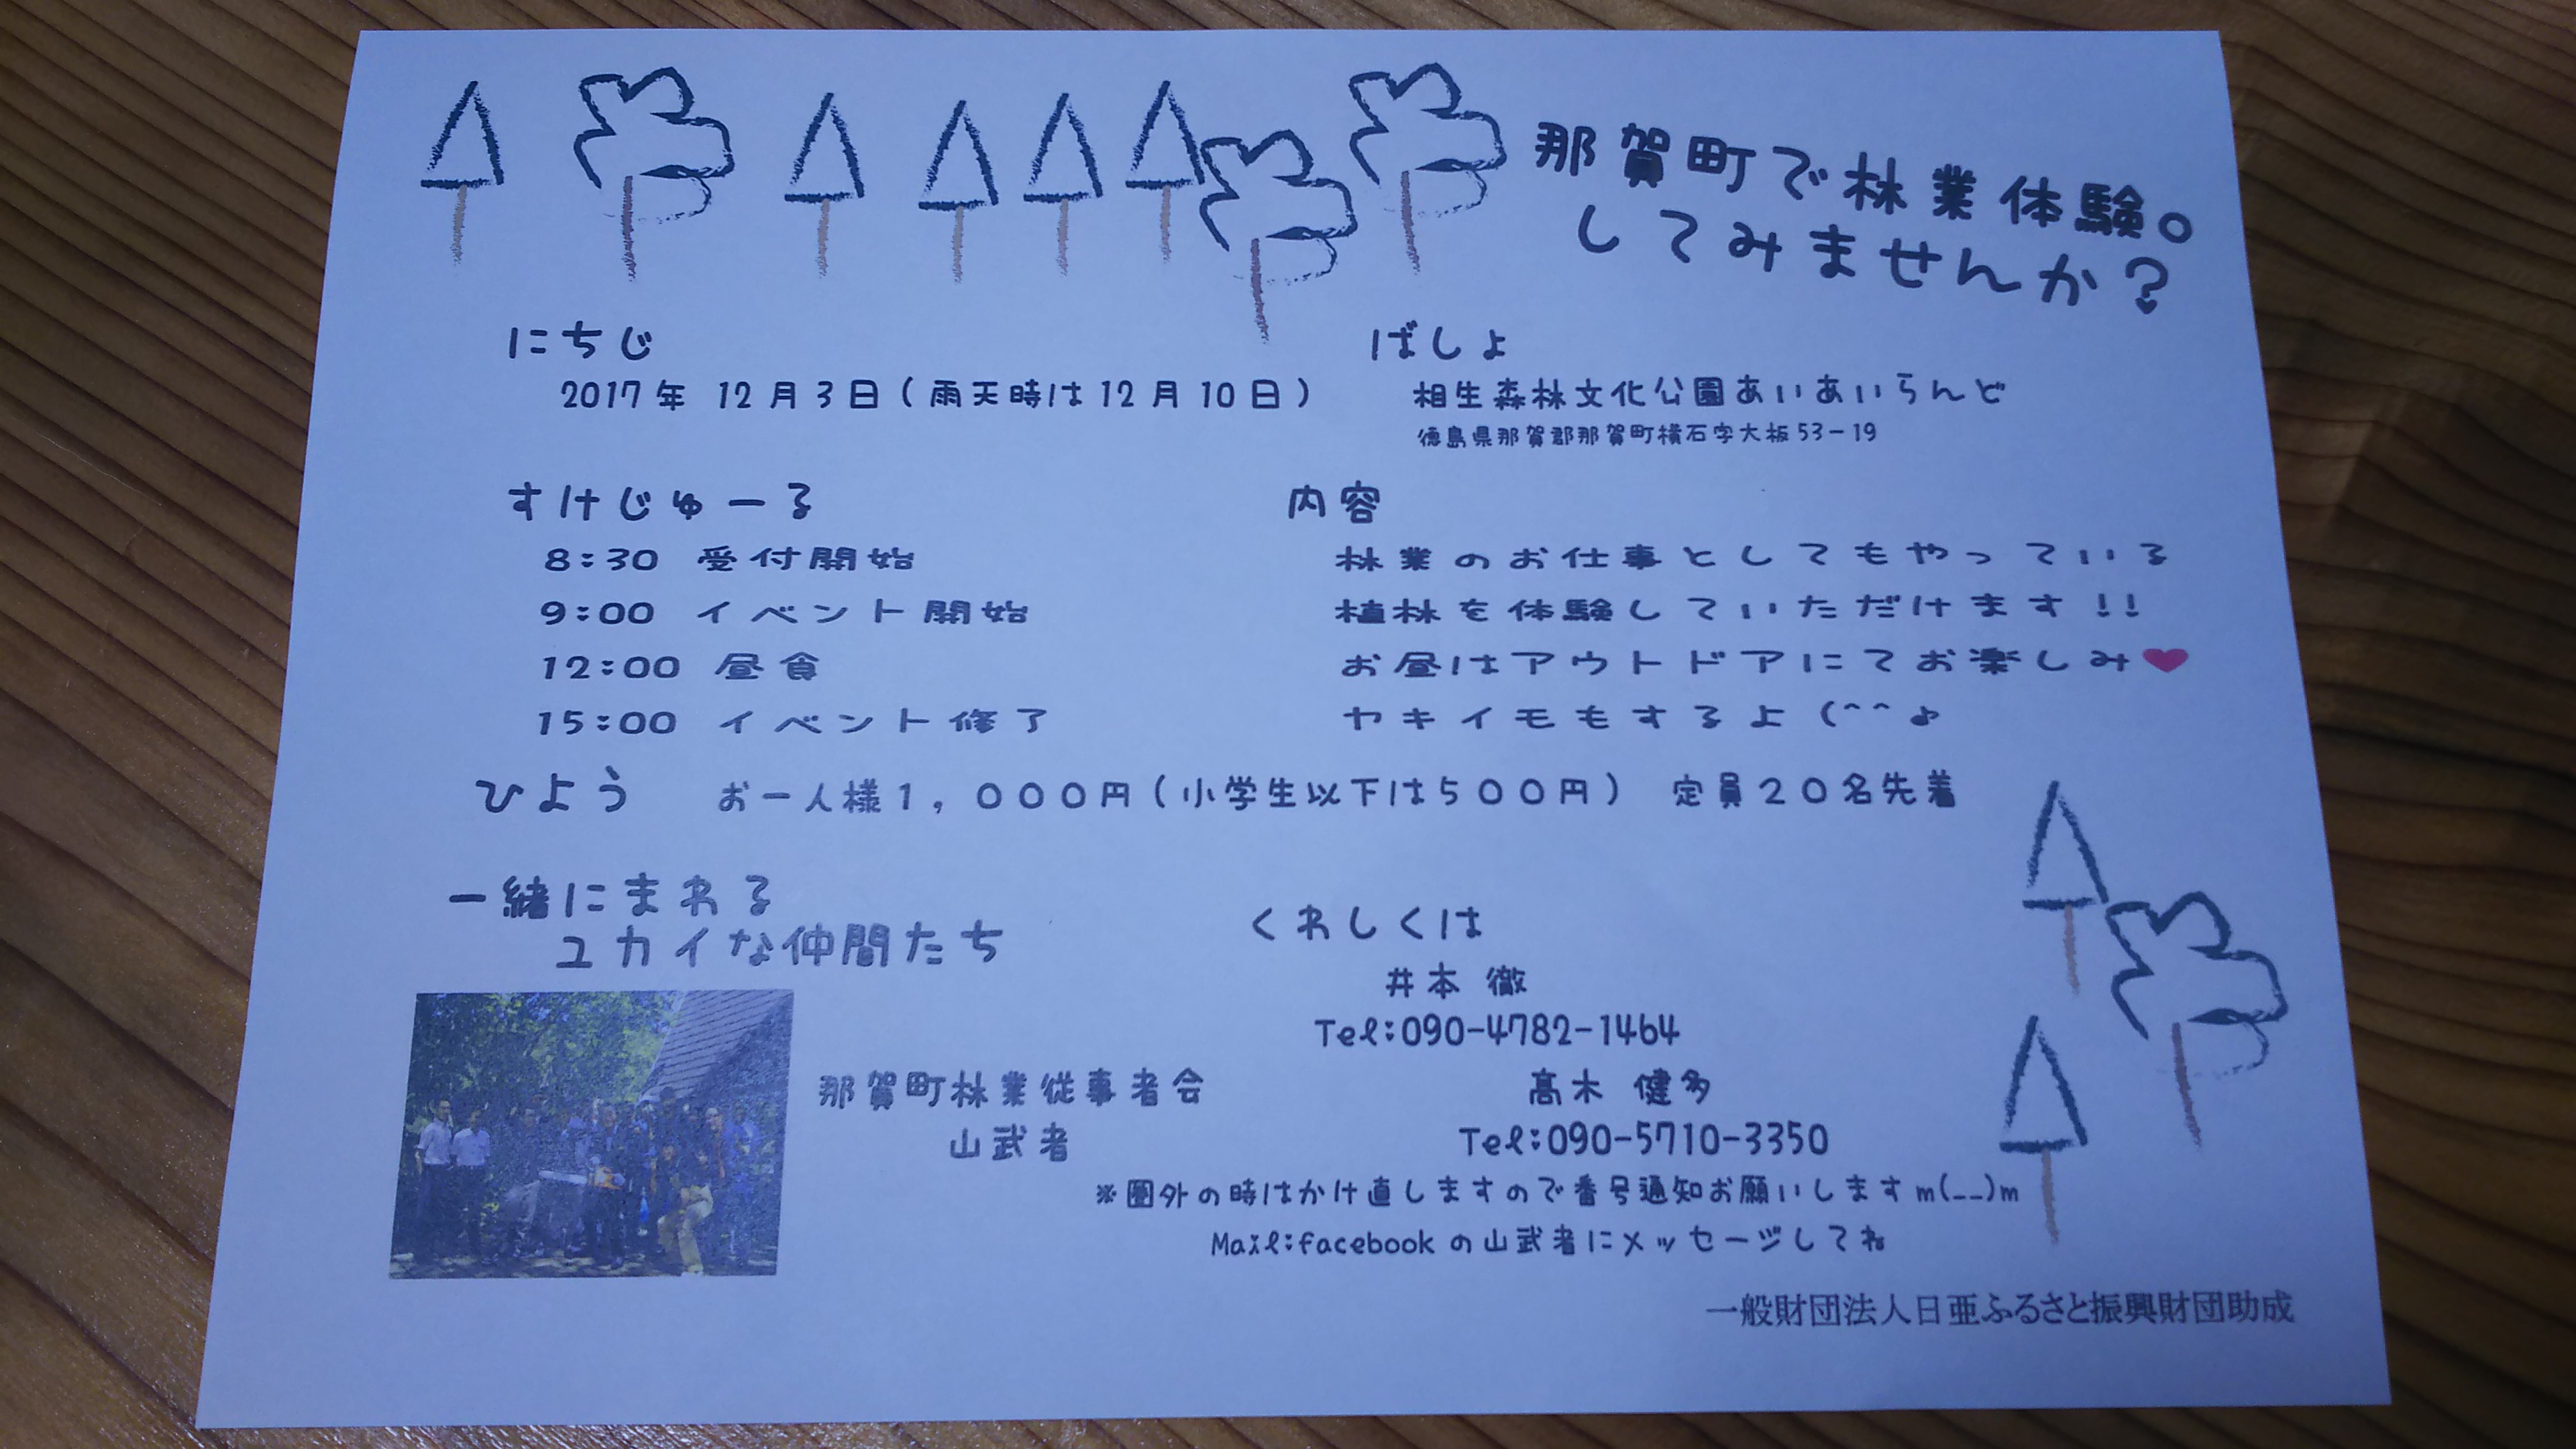 那賀町で林業体験。
してみませんか？
にちじ
2017年 12月3日(雨天時は12月10日)
ばしょ
相生森林文化公園あいあいらんど
徳島県那賀郡那賀町横石字大板53-19
すけじゅーる
8:30 受付開始
9:00 イベント開始
12:00 昼食
15:00 イベント修了
内容
林業のお仕事としてもやっている
植林を体験していただけます!!
お昼はアウトドアにてお楽しみ♥
ヤキイモもするよ(^^♪
ひよう お一人様１，０００円(小学生以下は５００円) 定員２０名先着
一緒にまわる
ユカイな仲間たち
那賀町林業従事者会
山武者
くわしくは
井本 徹
Tel:090-4782-1464
髙木 健多
Tel:090-5710-3350
※圏外の時はかけ直しますので番号通知お願いしますm(__)m
Mail:facebookの山武者にメッセージしてね
一般財団法人日亜ふるさと振興財団助成